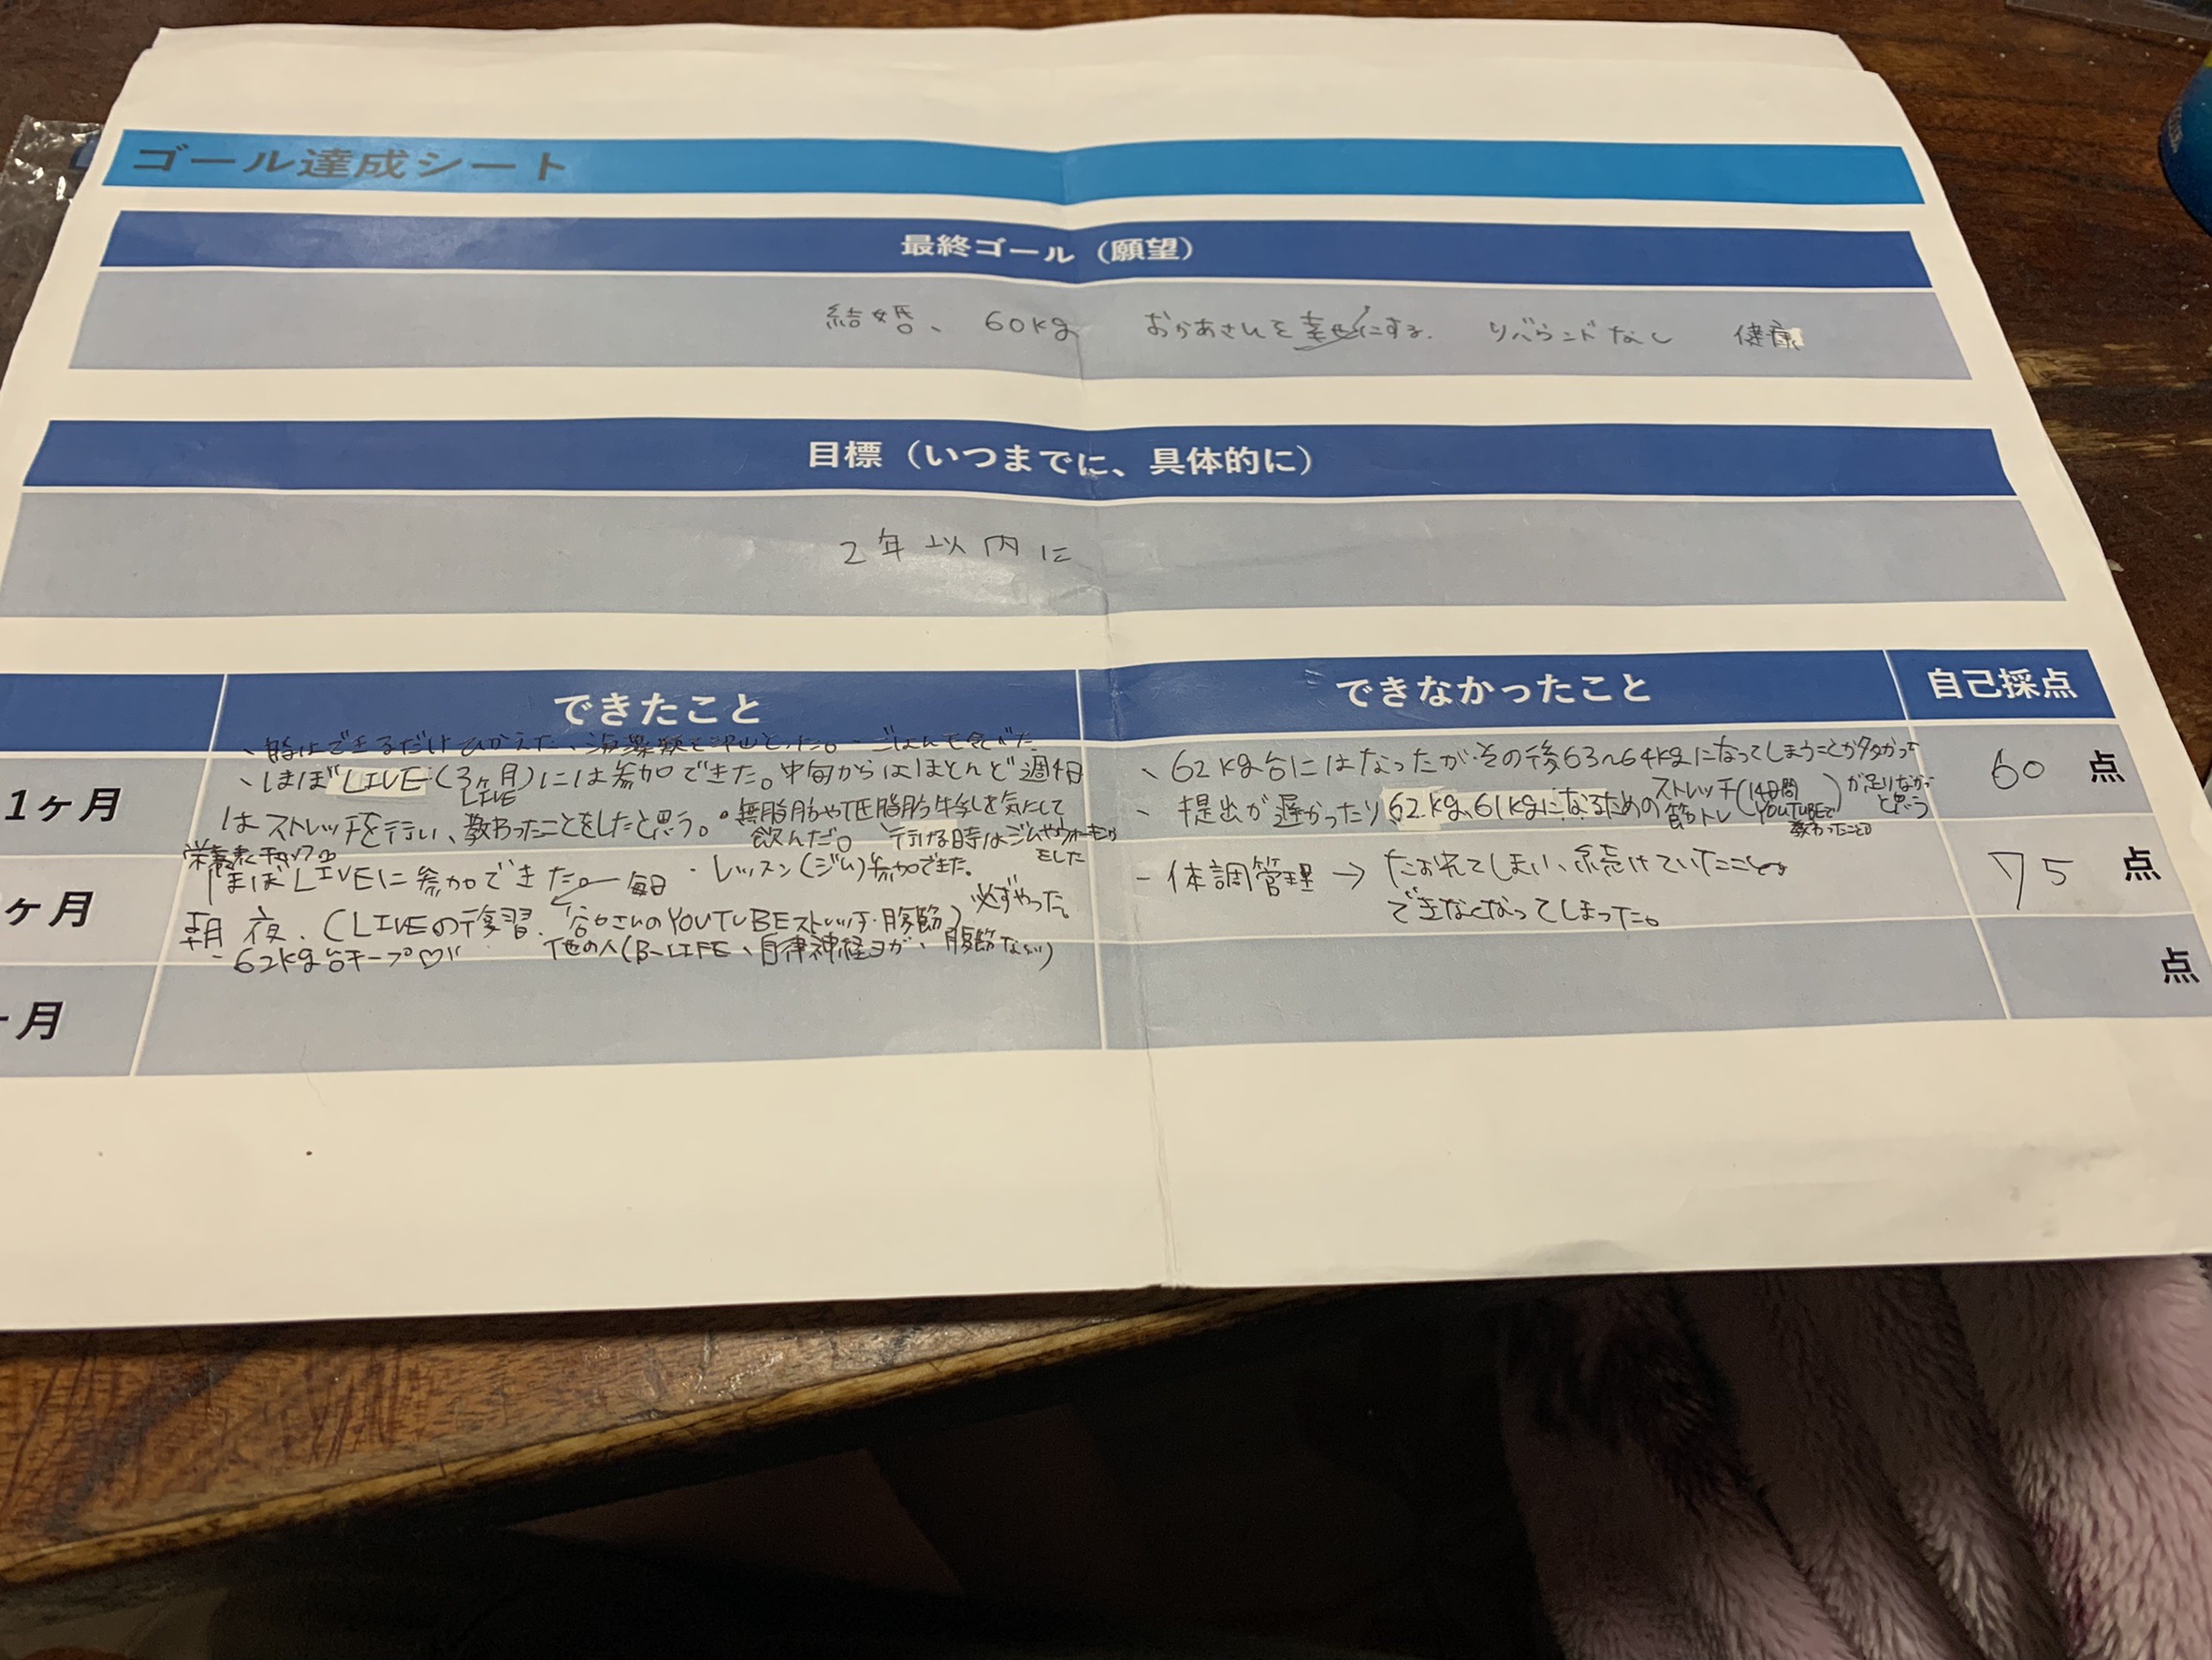 ゴール達成シート
最終ゴール（願望）
結婚、 60kg おかあさんを幸せにする. リバウンドなし 健康
目標（いつまでに、具体的に）
2年以内に
できたこと
できなかったこと
自己採点
はできるだけひかえた、海藻類を沢山とった。・ごはんも食べた
、ほぼLIVE(3ヶ月)には参加できた。中旬からはほとんど週4日
LIVE
はストレッチを行い、教わったことをしたと思う。・無脂肪や低脂肪牛乳を気にして
飲んだ。 行ける時はジムやウォーキング
をした
1ヶ月
、62kg台にはなったが、その後63~64kgになってしまうことが多かった
、提出が遅かったり62kg、61kgになるためのストレッチ(14日間 が足りなかった
筋トレ YOUTUBEで ) と思う
教わったこと
60 点
栄養素チェック
ほぼLIVEに参加できた。― 毎日 ・レッスン(ジム)参加できた。
朝 夜.(LIVEの復習. 谷口さんのYOUTUBEストレッチ・腹筋)必ずやった。
-62kg台キープ♡ 他の人(B-LIFE、自律神経ヨガ、腹筋など)
ヶ月
-体調管理→たおれてしまい、続けていたことが
できなくなってしまった。
75 点
月
点